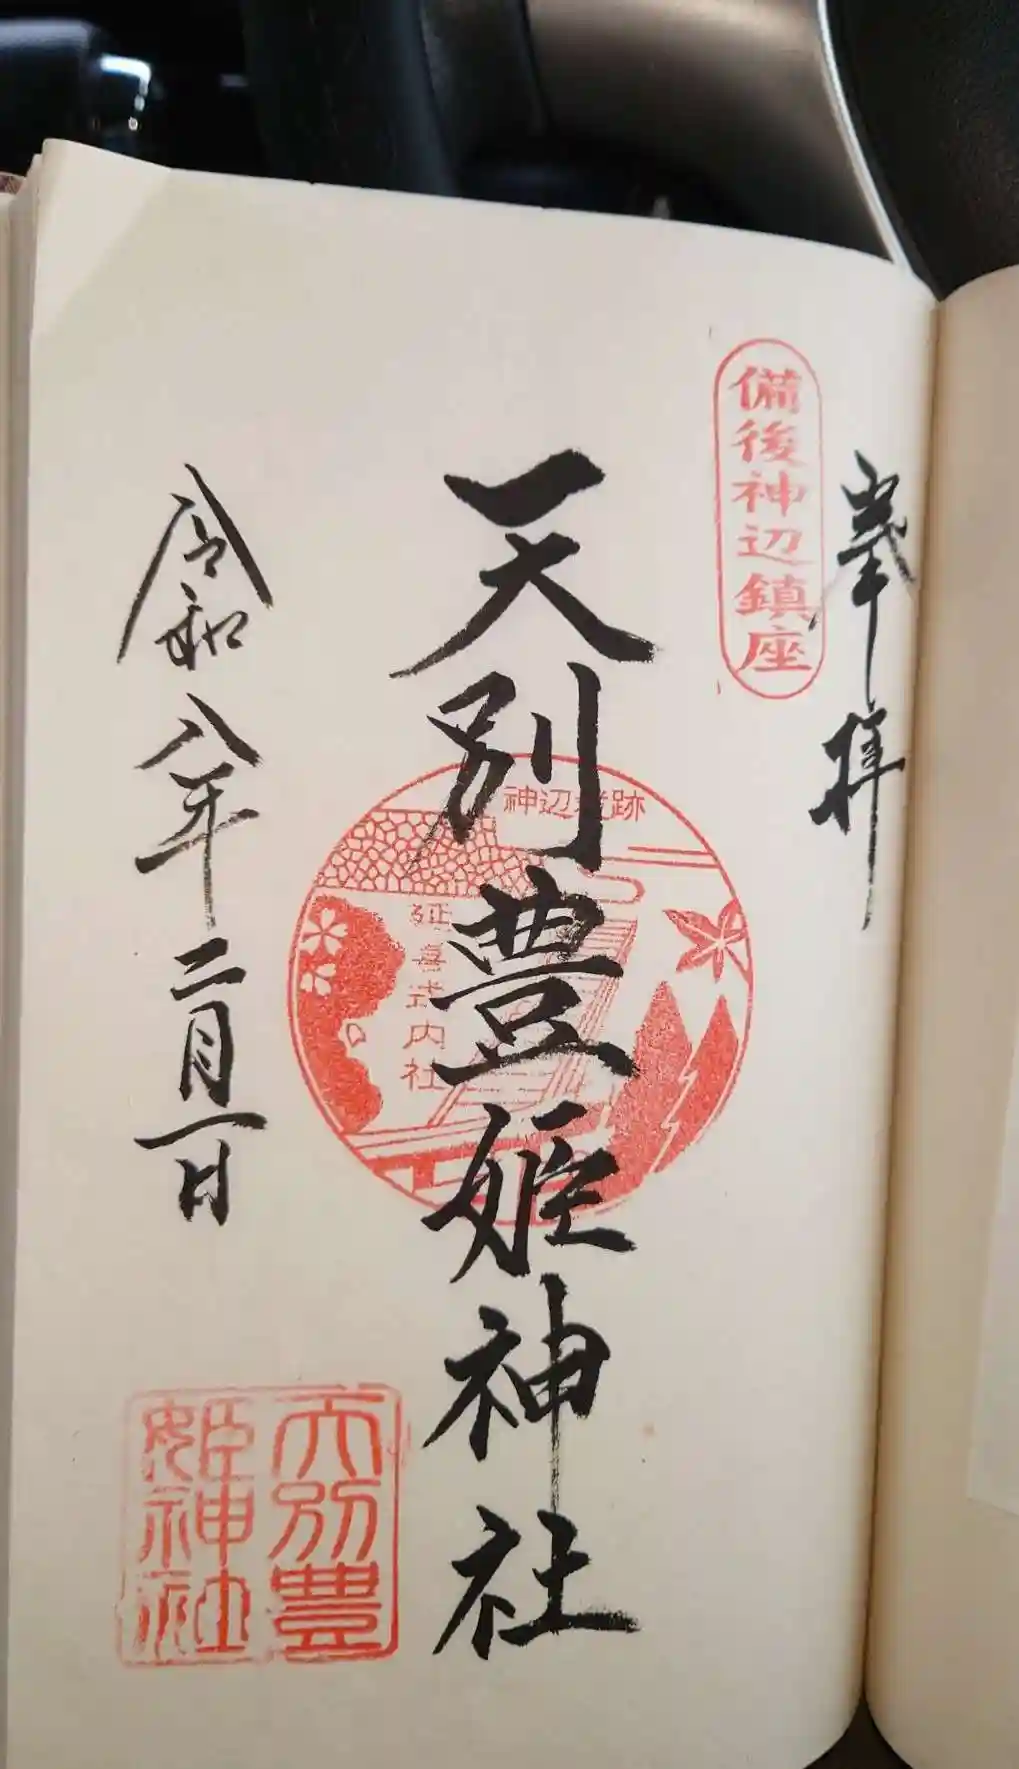 奉拝
備後神辺鎮座
天別豊姫神社
神辺城跡
延喜式内社
令和八年二月一日
天別豊
姫神社